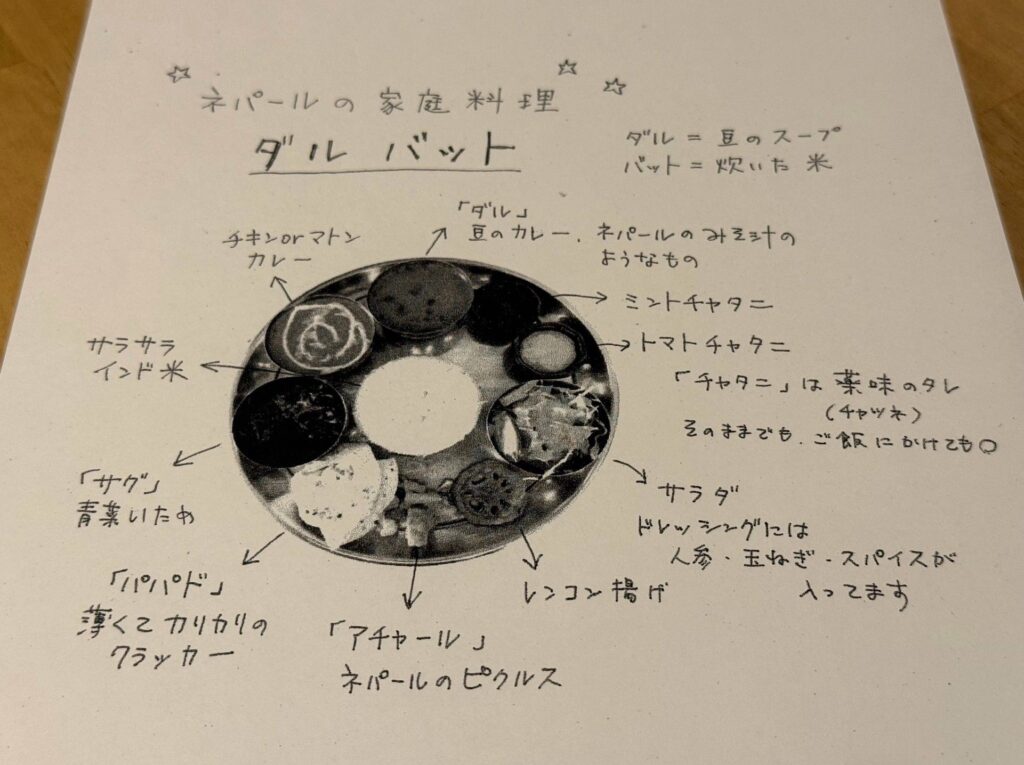 ネパールの家庭料理
ダルバット
ダル = 豆のスープ
バット = 炊いた米
「ダル」
豆のカレー、ネパールのみそ汁の
ようなもの
チキンorマトン
カレー
ミントチャタニ
トマトチャタニ
「チャタニ」は薬味のタレ
(チャツネ)
そのままでも、ご飯にかけても○
サラサラ
インド米
「サグ」
青菜いため
サラダ
ドレッシングには
人参・玉ねぎ・スパイスが
入ってます
レンコン揚げ
「パパド」
薄くてカリカリの
クラッカー
「アチャール」
ネパールのピクルス